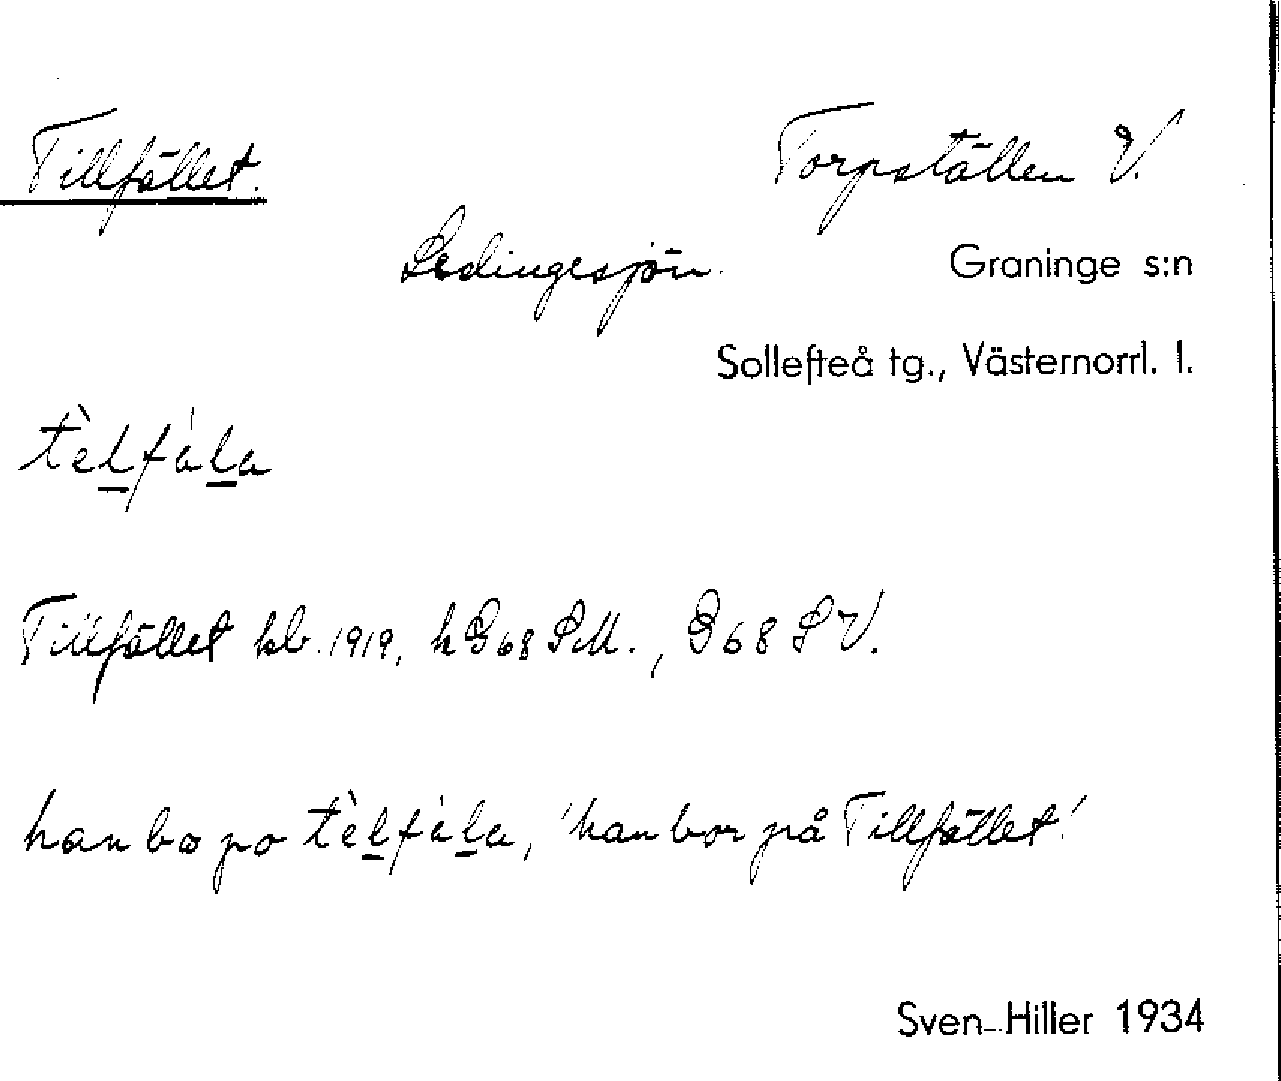 Tillfället. Torpställen V.
Ledingesjön. Graninge s:n
Sollefteå tg., Västernorrl. l.
tèlfàla
Tillfället kb. 1919, h G 68 SM., G 68 S V.
han bo po tèlfàla, 'han bor på Tillfället'
Sven Hiller 1934